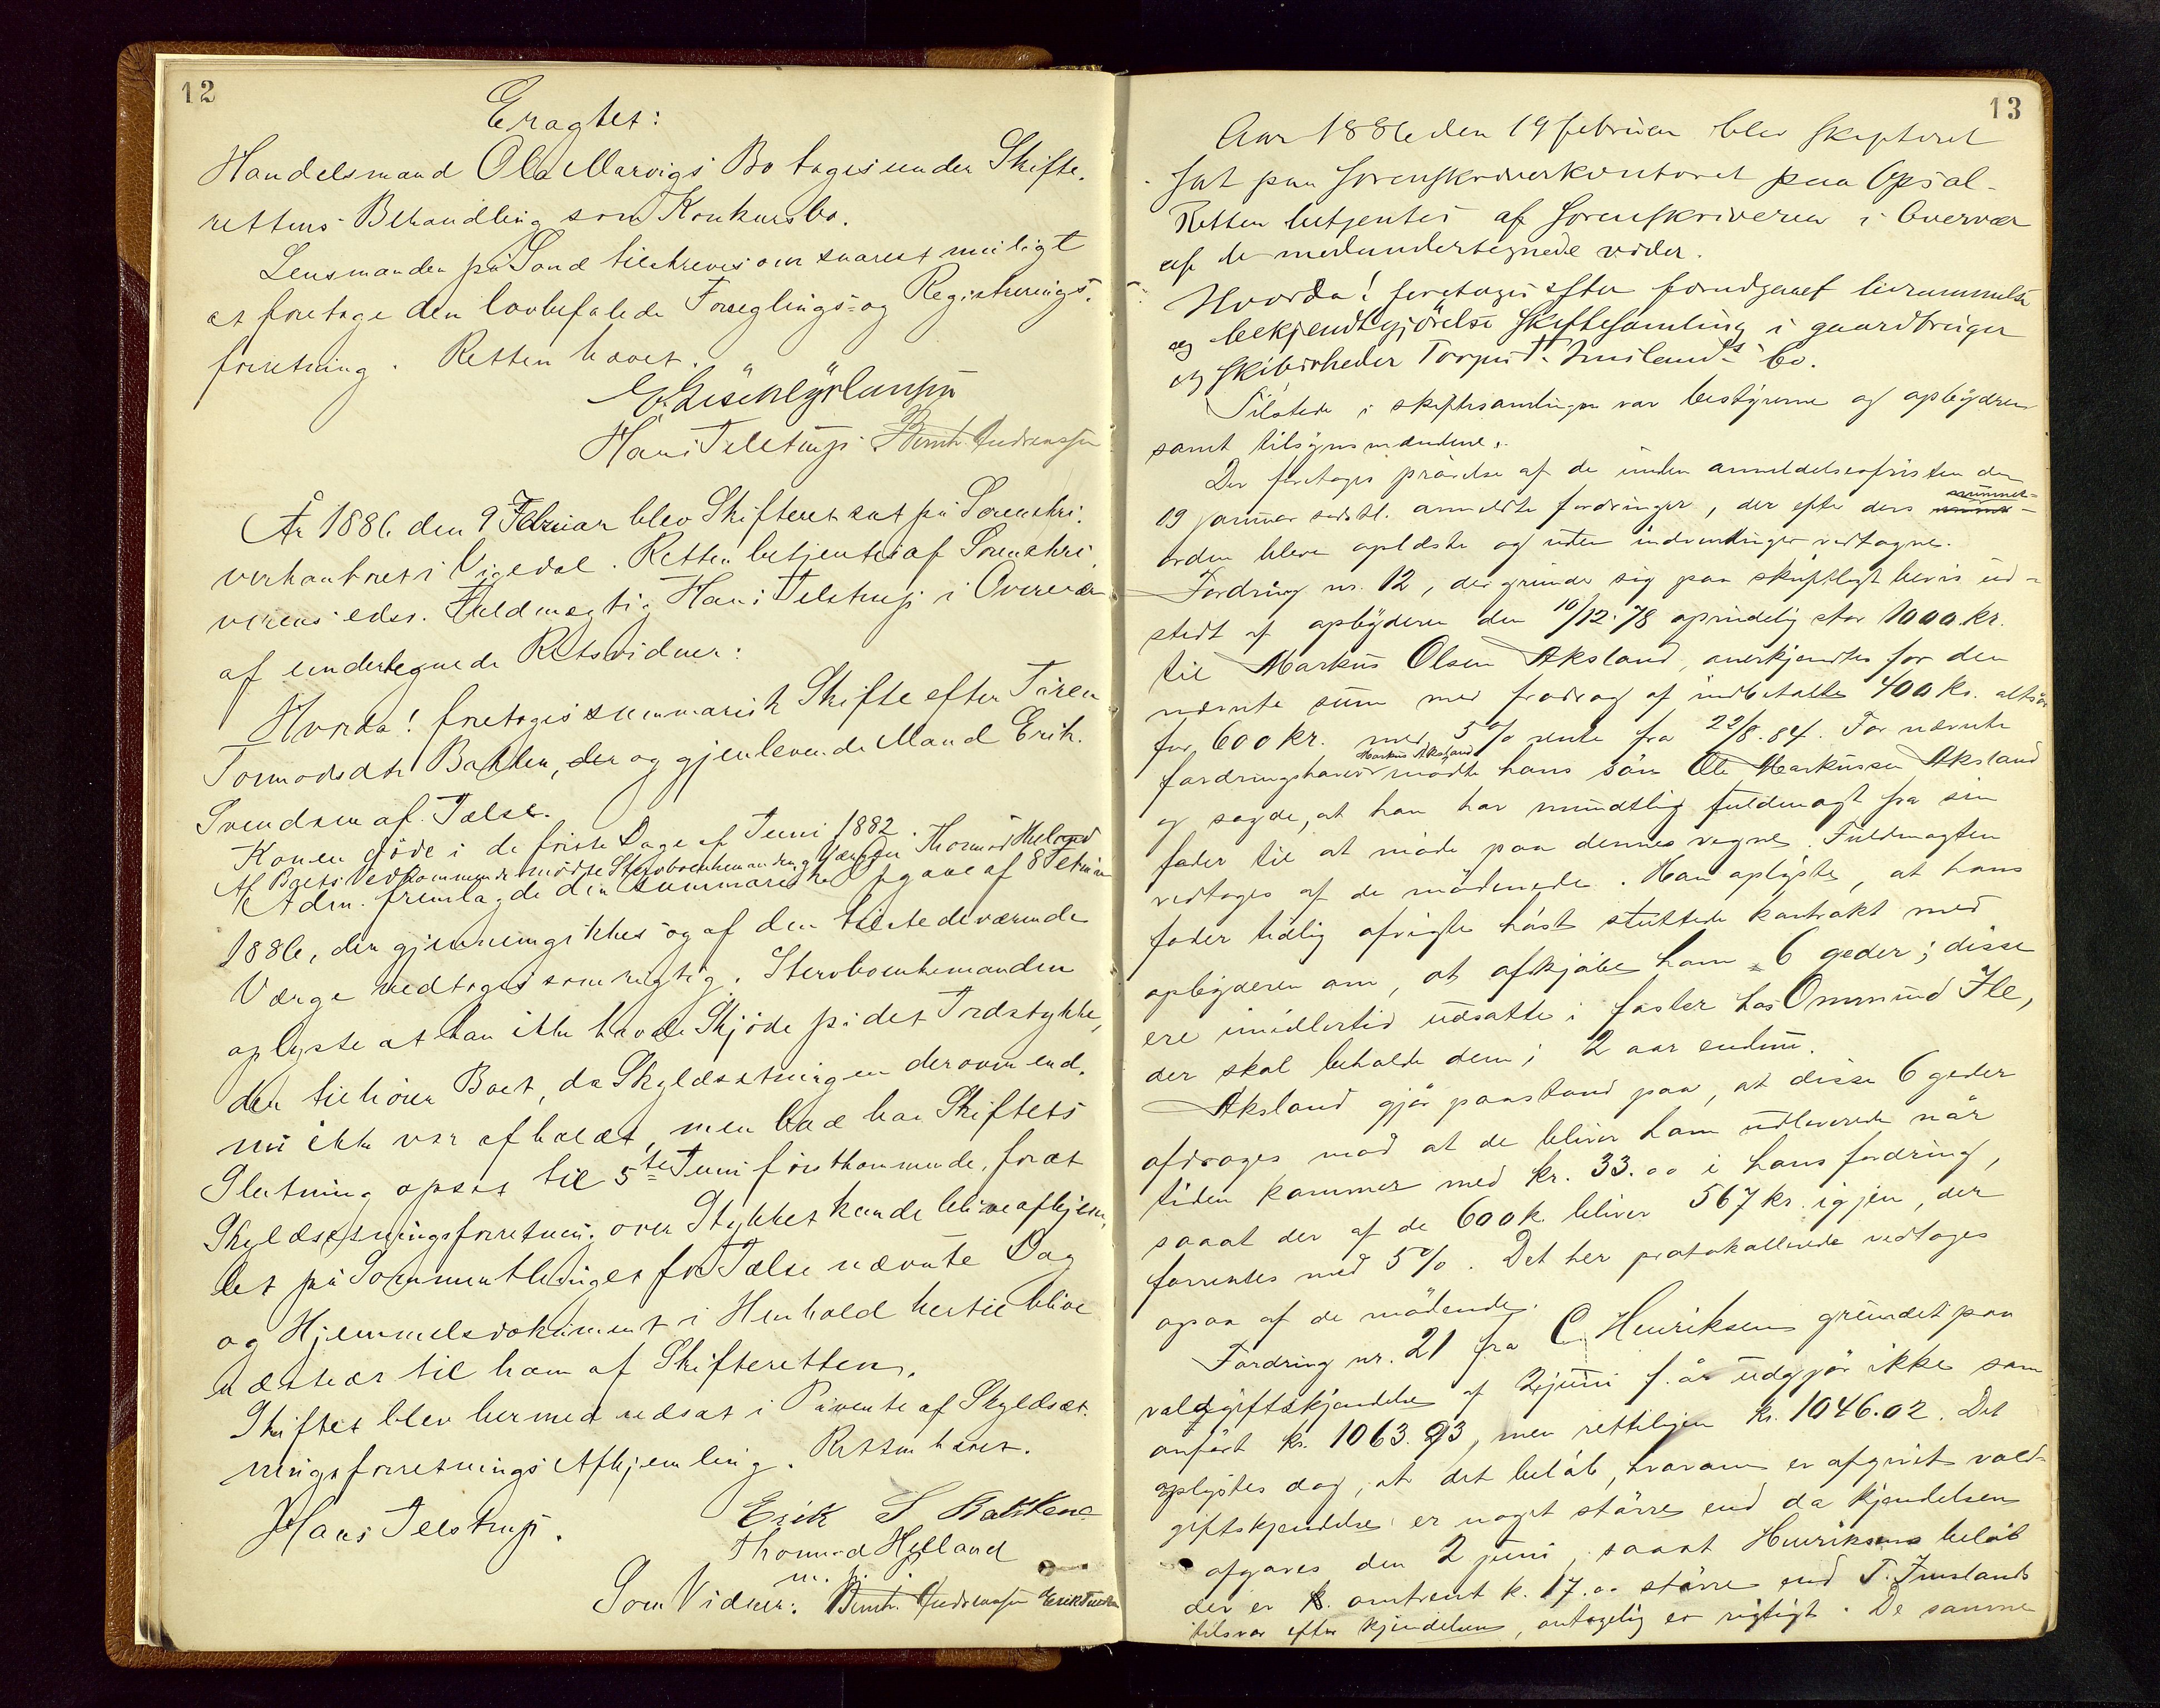 12
Eragtet:
Handelsmand Ola Marvigs Bo tages under Skifte-
rettens Behandling som Konkursbo.
Lensmanden på Sand tilskreves om snarest muligt
at foretage den lovbefalede Forseglings- og Registrerings-
forretning. Retten hævet.
Hans Telstrup Bernh. Andreassen
År 1886 den 9 Februar blev Skifteret sat på Sorenskri-
verkontoret i Vigedal. Retten betjentes af Sorenskri-
verens edsv. Fuldmægtig Hans Telstrup i Overvær
af undertegnede Retsvidner:
Hvorda! foretoges summarisk Skifte efter Tåren
Tormodsdtr Bakken, der og gjenlevende Mand Erik
Svendsen af Tælse.
Konen døde i de første Dage af Juni 1882.
Af Boets Vedkommende mødte Sterboenkemanden og Værgen Thormod Helland
Adm. fremlagde den summariske Opgave af 8 Februar
1886, der gjennemgikkes og af den tilstedeværende
Værge vedtoges som rigtig. Sterboenkemanden
oplyste at han ikke havde Skjøde på det Jordstykke,
der tilhører Boet, da Skyldsætningen derover end-
nu ikke var afholdt, men bad han Skiftets
Slutning opsat til 5te Juni førstkommende, forat
Skyldsætningsforretning over Stykket kunde blive afhjem-
let på Sommerthinget for Jælse nævnte Dag
og Hjemmelsdokument i Henhold hertil blive
udstedt til ham af Skifteretten.
Skiftet blev hermed udsat i Påvente af Skyldsæt-
ningsforretnings Afhjemling. Retten hævet.
Hans Telstrup. Erik S Bakkene
Thormod Helland
m. p. p.
Som Vidner: Bernh. Andreassen
13
Aar 1886 den 19 februar blev skifteret
sat paa sorenskriverkontoret paa Opsal.
Retten betjentes af sorenskriveren i Overvær
af de medundertegnede vidner.
Hvorda! foretoges efter forudgaaet berammelse
og bekjendtgjörelse skiftesamling i gaardbruger
og skibsrheder Torger T. Imslands bo.
Tilstede i skiftesamlingen var bestyrerne og opbyderen
samt tilsynsmændene.
Der foretoges prövelse af de inden anmeldelsesfristen den
19 januar sidstl. anmeldte fordringer, der efter ders nummer-
orden bleve oplæste og uden indvendinger vedtagne.
Fordring nr. 12, der grunder sig paa skriftligt bevis ud-
stedt af opbyderen den 10/12.78 oprindelig stor 1000 kr.
til Markus Olsen Aksland, anerkjendtes for den
nævnte sum med fradrag af indbetalte 400 kr. altså
for 600 kr. med 5% rente fra 22/8.84. For nævnte
fordringshaver Markus Aksland mödte hans sön Ole Markussen Aksland
og sagde, at han har mundtlig fuldmagt fra sin
fader til at möde paa dennes vegne. Fuldmagten
vedtoges af de mödende. Han oplyste, at hans
fader tidlig afvigte höst sluttede kontrakt med
opbyderen om, at afkjöbe ham 6 geder; disse
ere imidlertid udsatte i foster hos Ommund Ile,
der skal beholde dem i 2 aar endnu.
Aksland gjör paastand paa, at disse 6 geder
afdrages mod at de bliver ham udleverede når
tiden kommer med kr. 33.00 i hans fordring,
saaat der af de 600 k. bliver 567 kr. igjen, der
forrentes med 5%. Det her protokollerede vedtoges
ogsaa af de mödende.
Fordring nr. 21 fra C. Henriksen grundet paa
voldgiftskjendelse af 2 juni f. år udgjör ikke som
anfört kr. 1063.93, men rettelig kr. 1046.02. Det
oplystes dog, at det belöb, hvorom er afgivet vold-
giftskjendelse er noget större end da kjendelsen
afgaves den 2 juni, saaat Henriksens belöb
der er omtrent k. 17.00 större end T. Imslands
tilsvar efter kjendelsen, antagelig er rigtigt. De samme